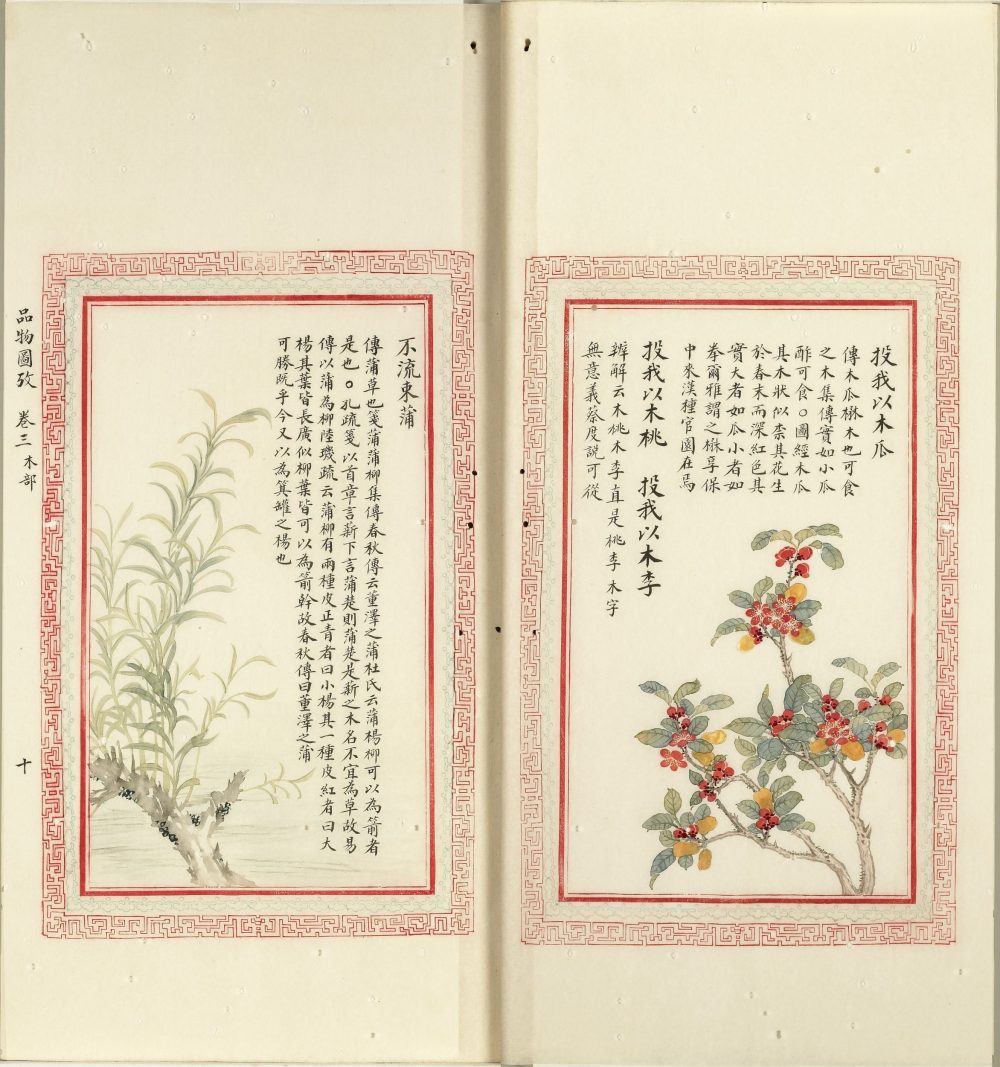 投我以木瓜
傳木瓜楙木也可食
之木集傳實如小瓜
酢可食○圖經木瓜
其木狀似柰其花生
於春末而深紅色其
實大者如瓜小者如
拳爾雅謂之楙享保
中來漢種官園在焉
投我以木桃　投我以木李
辨解云木桃木李直是桃李木字
無意義蔡度說可從
不流束蒲
傳蒲草也箋蒲蒲柳集傳春秋傳云董澤之蒲杜氏云蒲楊柳可以為箭者
是也○孔疏箋以首章言薪下言蒲楚則蒲楚是薪之木名不宜為草故易
傳以蒲為柳陸璣疏云蒲柳有兩種皮正青者曰小楊其一種皮紅者曰大
楊其葉皆長廣似柳葉皆可以為箭幹故春秋傳曰董澤之蒲
可勝既乎今又以為箕罐之楊也
品物圖攷　卷三　木部　十